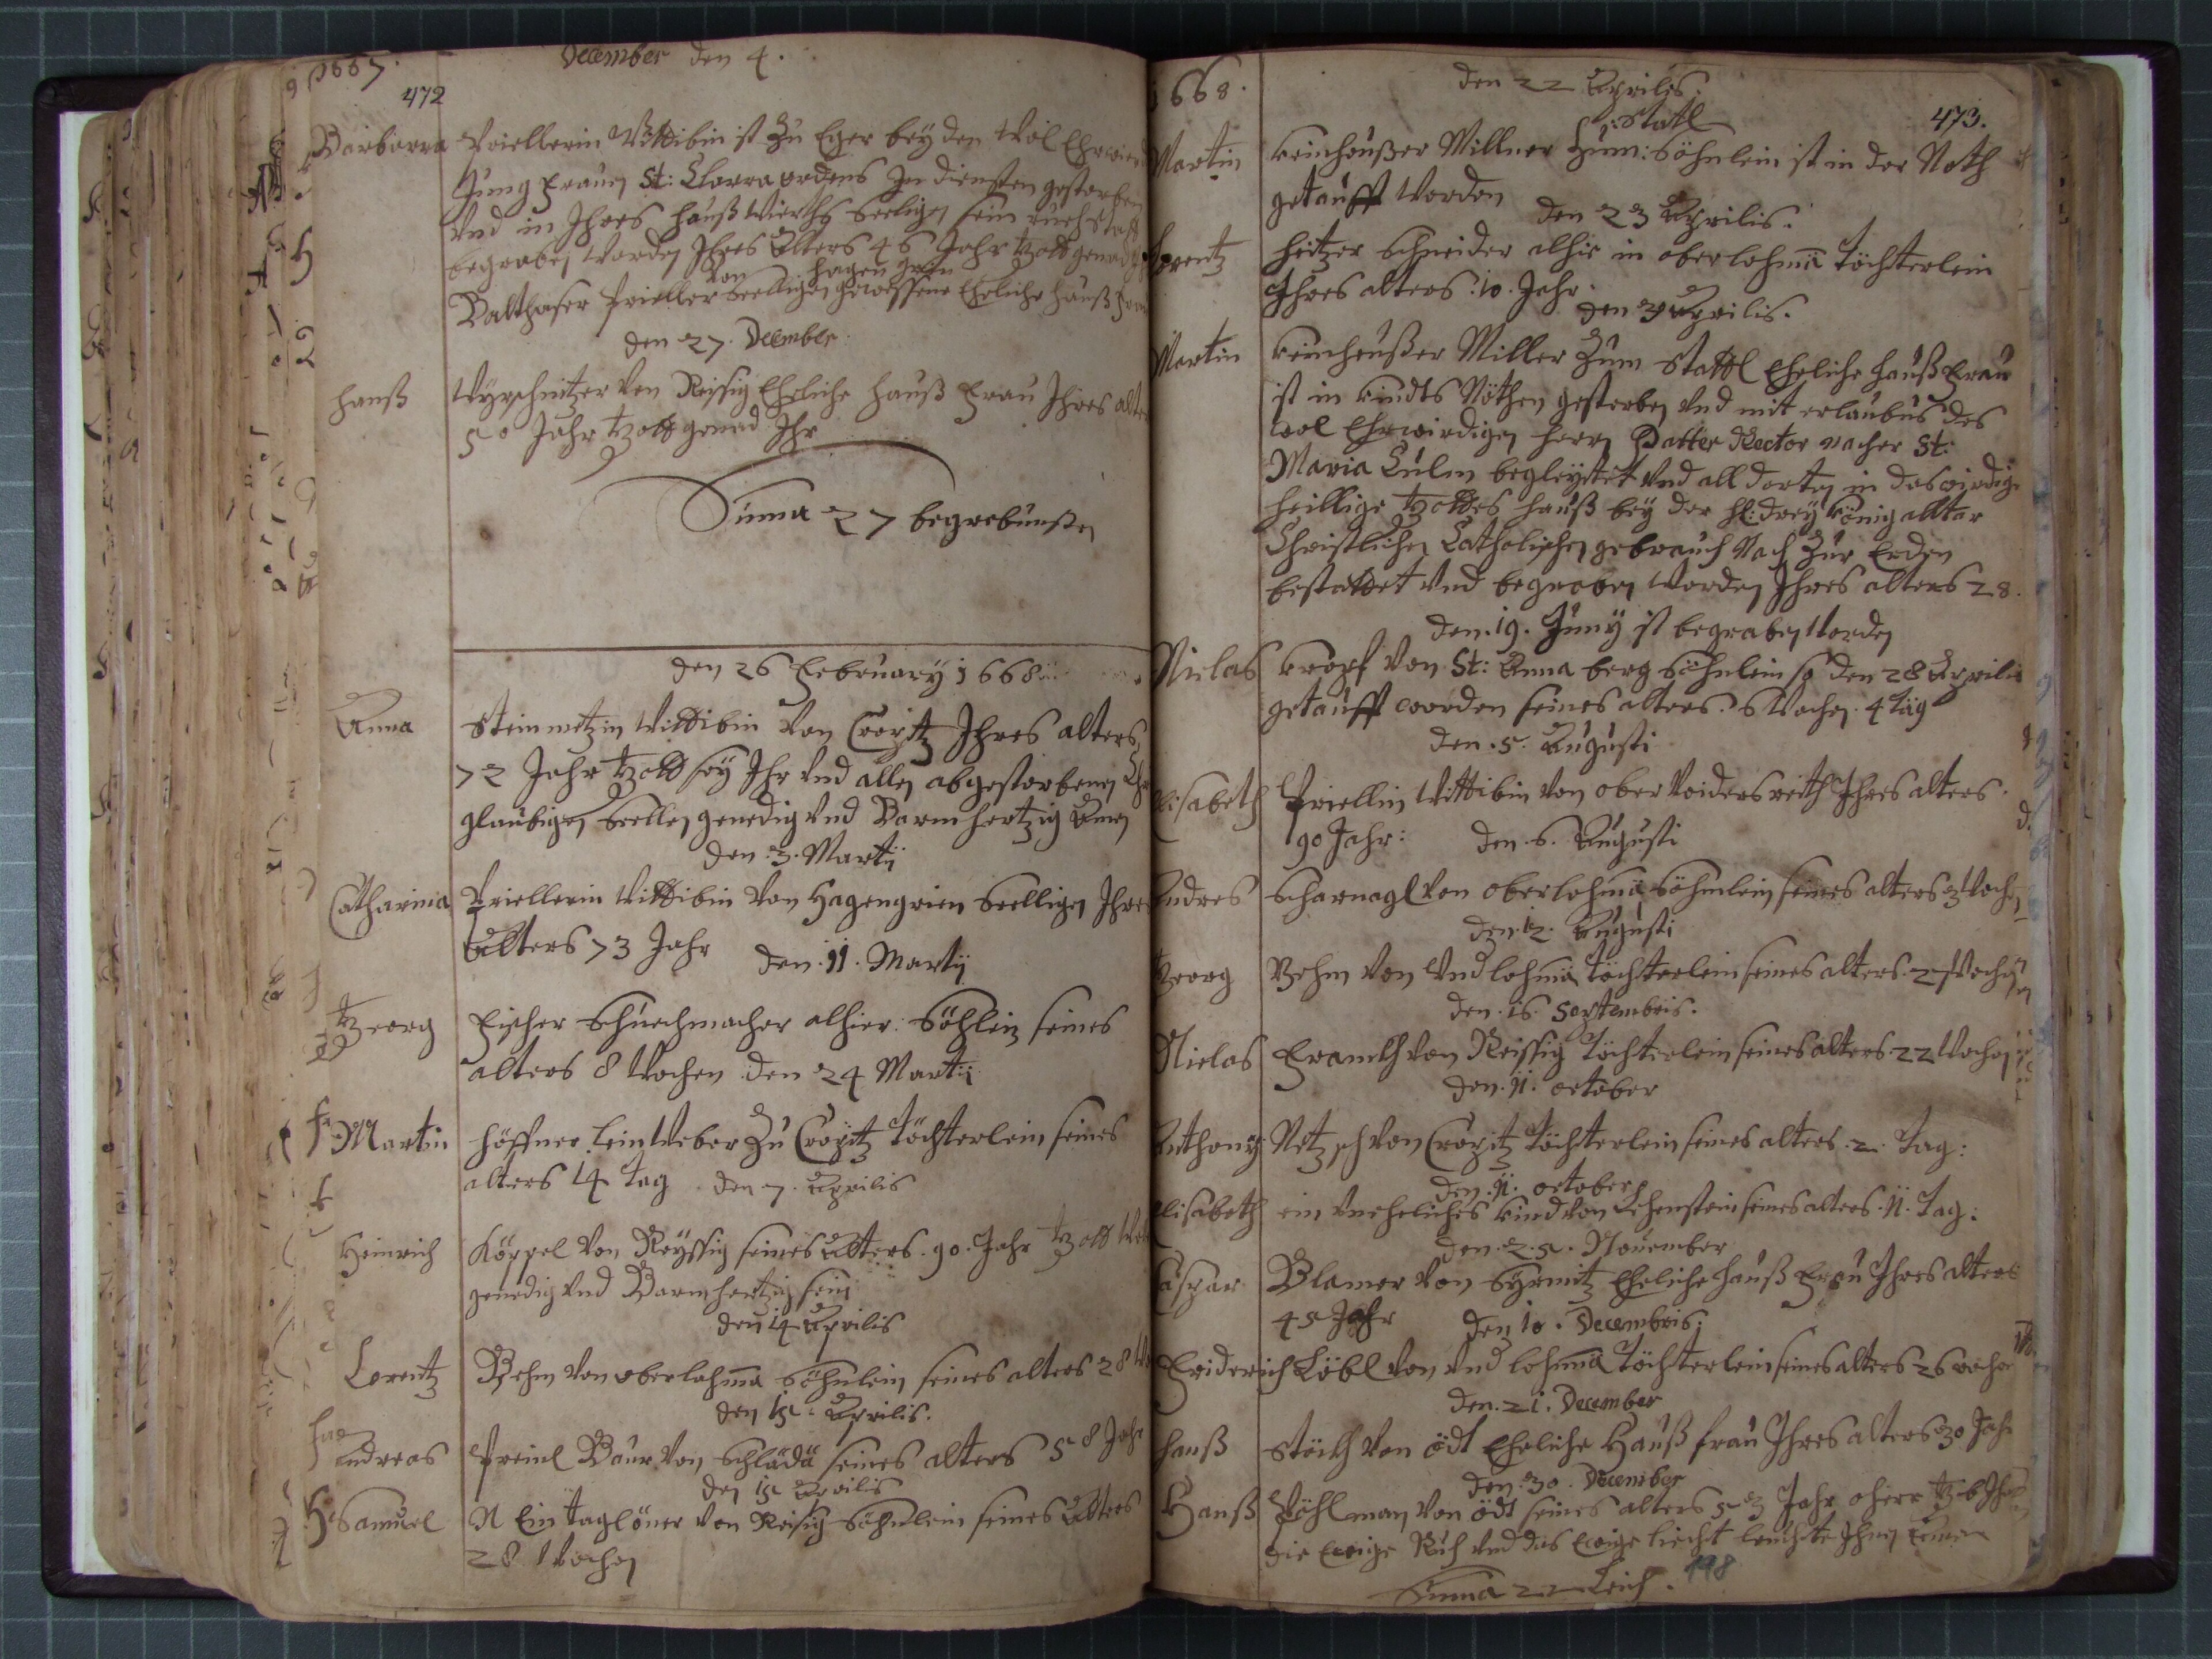 1667.
December den 4.
472
Barbarra Priellerin Wittibin ist Zu Eger bey den Wol Ehrwierd
Jungfrauen St: Clarra ordens Jn diensten gestorben
Vnd in Jhres hauß Wierths Seeligen sein ruehstatt
begraben Worden Jhres Alters 46 Jahr Gott genad
Von hagen grün
Balthaser Prieller Seelligen gewessene Eheliche hauß frau
den 27. December
hanß Wyrschnitzer Von Reissig Eheliche hauß frau Jhres alters
50 Jahr Gott genad Jhr
Suma 27 begrebnußen
den 26 February 1668
Anna Steinmetzin Wittibin Von Croytz Jhres alters
72 Jahr Gott sey Jhr Vnd allen abgestorbenen
glaubigen Seellen genedig Vnd Barmhertzig Amen
den 3. Martij
Catharina Priellerin Wittibin Von Hagengrien Seelligen Jhres
Alters 73 Jahr den 11. Martij
Georg fischer Schuechmacher alhier Söhlein seines
alters 8 Wochen den 24 Martij
Martin höffner leinWeber Zu Croytz Töchterlein seines
alters 14 Tag den 7. Aprilis
Heinrich Köppel Von Reyssig seines Alters 90. Jahr Gott Wol
genedig Vnd Barmhertzig sein
den 14 Aprilis
Lorentz Behm Von oberlohma Söhnlein seines alters 28
den 15. Aprilis.
Andreas Preinl Baur Von Schlada seines alters 58 Jahr
den 15 Aprilis
Samuel N Ein taglöner Von Reisig Söhnlein seines Alters
28 Wochen
1668.
den 22 Aprilis.
473.
Stattl
Martin Keinheußer Millner Zum: Söhnlein ist in der Noth
getaufft Worden
den 23 Aprilis.
Lorentz heitzer Schneider alhie in oberlohma Töchterlein
Jhres alters 10. Jahr.
den Aprilis.
Martin Keinheußer Miller Zum Stattl Eheliche haußfrau
ist in Kindts Nöthen gestorben Vnd mit erlaubnus des
wol Ehrwirdigen Herrn Patter Rector nacher St:
Maria Culm begleytet Vnd all dorten in das wirdige
heillige Gottes hauß bey der hl: drey König alltar
Christlichen Catholischen gebrauch Nach Zur Erden
bestattet Vnd begraben Worden Jhres alters 28.
den 19. Juny ist begraben Worden
Nicklas Kropf Von St: Anna berg Söhnlein so den 28 Aprilis
getaufft worden seines alters 6 Wochen 4 Täg
den .5. Augusti
Elisabeth Priellin Wittibin Von ober Voidersreith Jhres alters
90 Jahr: den .6. Augusti
Andres Scharnagl Von oberlohma Söhnlein seines alters 3 Wochen
den 12. Augusti
Georg Behm Von Vndlohma Töchterlein seines alters 2 Wochen
den .16. Septembris.
Nicklas Von Reissig Töchterlein seines alters 22 Wochen
den .11. october
Anthony Netzsch Von Croytz Töchterlein seines alters .2. Tag:
den .11. october
Elisabeth ein Vneheliches Kind Von Lehenstein seines alters .11. Tag:
den .25. November
Caspar Blamer Von Syrmitz Eheliche hauß frau Jhres alters
45 Jahr den 10. Decembris.
Friderich Löbl Von Vndlohma Töchterlein seines alters 26 wochen
den .21. December
hanß Stöith Von ödt Eheliche Hauß frau Jhres alters 30 Jahr
den .30. December
Hanß Pöhlman Von ödt seines alters 53 Jahr o herr gib Jhm
die Ewige Ruh Vnd das Ewige liecht leichte Jhm Amen
Suma 22 Leich.
198